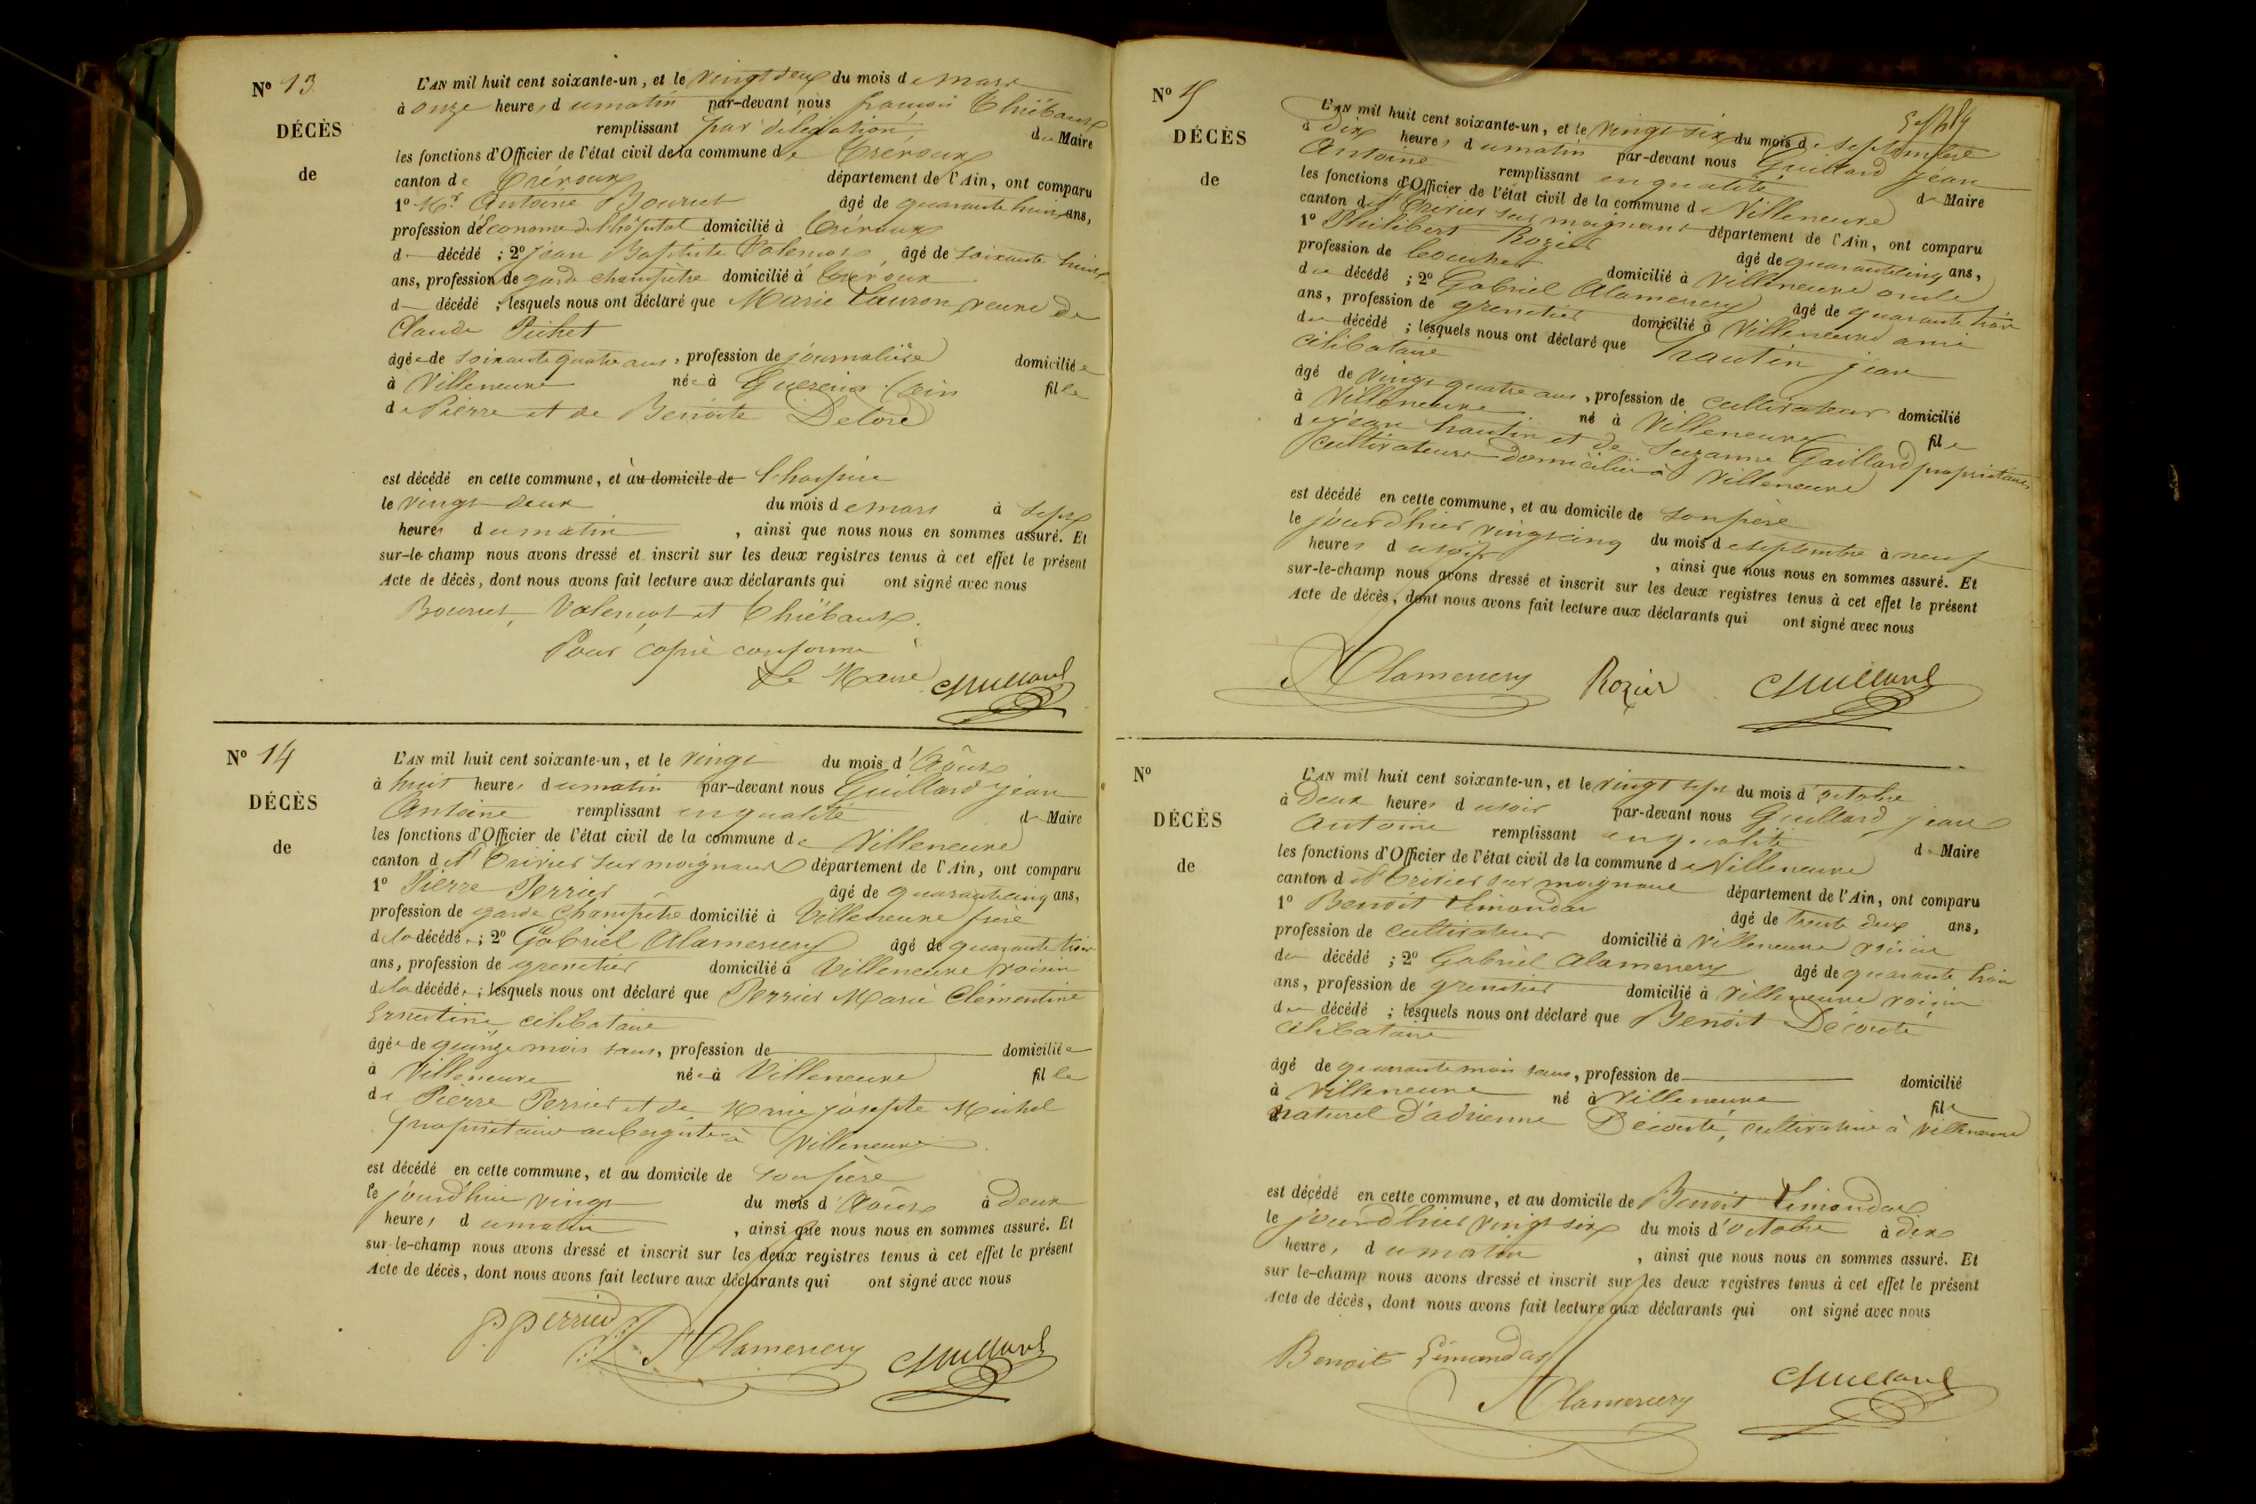 Nº 13
DÉCÈS
de
L'AN mil huit cent soixante-un, et le vingt deux du mois de mars
à onze heures du matin par-devant nous françois Thiébaux
remplissant par délégation du Maire
les fonctions d'Officier de l'état civil de la commune de Trévoux
canton de Trévoux département de l'Ain, ont comparu
1º Mr Antoine Bourret âgé de quarante huit ans,
profession de Econome de l'hôpital domicilié à Trévoux
d décédé ; 2º jean Baptiste Valençot, âgé de soixante huit
ans, profession de garde champêtre domicilié à Trévoux
d décédé ; lesquels nous ont déclaré que Marie Lauron, veuve de
Claude Pichet
âgée de soixante quatre ans, profession de journalière domiciliée
à Villeneuve née à Guereins (Ain fille
de Pierre et de Benoite Delore
est décédé en cette commune, et au domicile de l'hospice
le vingt deux du mois de mars à sept
heures du matin, ainsi que nous nous en sommes assuré. Et
sur-le-champ nous avons dressé et inscrit sur les deux registres tenus à cet effet le présent
Acte de décès, dont nous avons fait lecture aux déclarants qui ont signé avec nous
Bourret, Valençot et Thiébaux.
Pour copie conforme
Le Maire Guillard
Nº 14
DÉCÈS
de
L'AN mil huit cent soixante-un, et le vingt du mois d'Août
à huit heures du matin par-devant nous Guillard jean
Antoine remplissant en qualité de Maire
les fonctions d'Officier de l'état civil de la commune de Villeneuve
canton de St Trivier sur moignans département de l'Ain, ont comparu
1º Pierre Perrier âgé de quarante cinq ans,
profession de garde champêtre domicilié à Villeneuve père
de la décédée ; 2º Gabriel Alamercery âgé de quarante trois
ans, profession de grenetier domicilié à Villeneuve voisin
de la décédée ; lesquels nous ont déclaré que Perrier Marie Clémentine
Ernestine célibataire
âgée de quinze mois ans, profession de domiciliée
à Villeneuve née à Villeneuve fille
de Pierre Perrier et de Marie josephte Michel
propriétaires aubergistes à Villeneuve
est décédé en cette commune, et au domicile de son père
le jourd'hui vingt du mois d'Août à deux
heures du matin, ainsi que nous nous en sommes assuré. Et
sur-le-champ nous avons dressé et inscrit sur les deux registres tenus à cet effet le présent
Acte de décès, dont nous avons fait lecture aux déclarants qui ont signé avec nous
P perrier Alamercery Guillard
Nº 15
DÉCÈS
de
L'AN mil huit cent soixante-un, et le vingt six du mois de septembre
à dix heures du matin par-devant nous Guillard jean
Antoine remplissant en qualité de Maire
les fonctions d'Officier de l'état civil de la commune de Villeneuve
canton de St Trivier sur moignans département de l'Ain, ont comparu
1º Philibert Rozier âgé de quarante cinq ans,
profession de boucher domicilié à Villeneuve oncle
du décédé ; 2º Gabriel Alamercery âgé de quarante trois
ans, profession de grenetier domicilié à Villeneuve ami
du décédé ; lesquels nous ont déclaré que trautin jean
célibataire
âgé de vingt quatre ans, profession de cultivateur domicilié
à Villeneuve né à Villeneuve fils
de jean trautin et de Suzanne Gaillard propriétaires
cultivateurs domiciliés à Villeneuve
est décédé en cette commune, et au domicile de son père
le jourd'hier vingt cinq du mois de septembre à neuf
heures du soir, ainsi que nous nous en sommes assuré. Et
sur-le-champ nous avons dressé et inscrit sur les deux registres tenus à cet effet le présent
Acte de décès, dont nous avons fait lecture aux déclarants qui ont signé avec nous
Alamercery Rozier Guillard
Nº
DÉCÈS
de
L'AN mil huit cent soixante-un, et le vingt sept du mois d'octobre
à Deux heures du soir par-devant nous Guillard jean
Antoine remplissant en qualité de Maire
les fonctions d'Officier de l'état civil de la commune de Villeneuve
canton de St Trivier sur moignans département de l'Ain, ont comparu
1º Benoît Limandas âgé de trente deux ans,
profession de cultivateur domicilié à Villeneuve voisin
du décédé ; 2º Gabriel Alamercery âgé de quarante trois
ans, profession de grenetier domicilié à Villeneuve voisin
du décédé ; lesquels nous ont déclaré que Benoît Décousté
célibataire
âgé de quarante mois ans, profession de domicilié
à Villeneuve né à Villeneuve fils
naturel d'adrienne Décousté, cultivatrice à Villeneuve
est décédé en cette commune, et au domicile de Benoit Limandas
le jourd'hier vingt six du mois d'octobre à dix
heures du matin, ainsi que nous nous en sommes assuré. Et
sur le-champ nous avons dressé et inscrit sur les deux registres tenus à cet effet le présent
Acte de décès, dont nous avons fait lecture aux déclarants qui ont signé avec nous
Benoit Limandas Alamercery Guillard